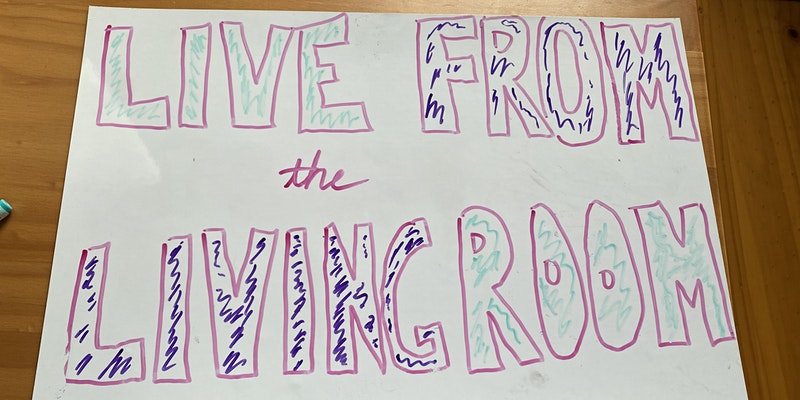 LIVE FROM
the
LIVING ROOM